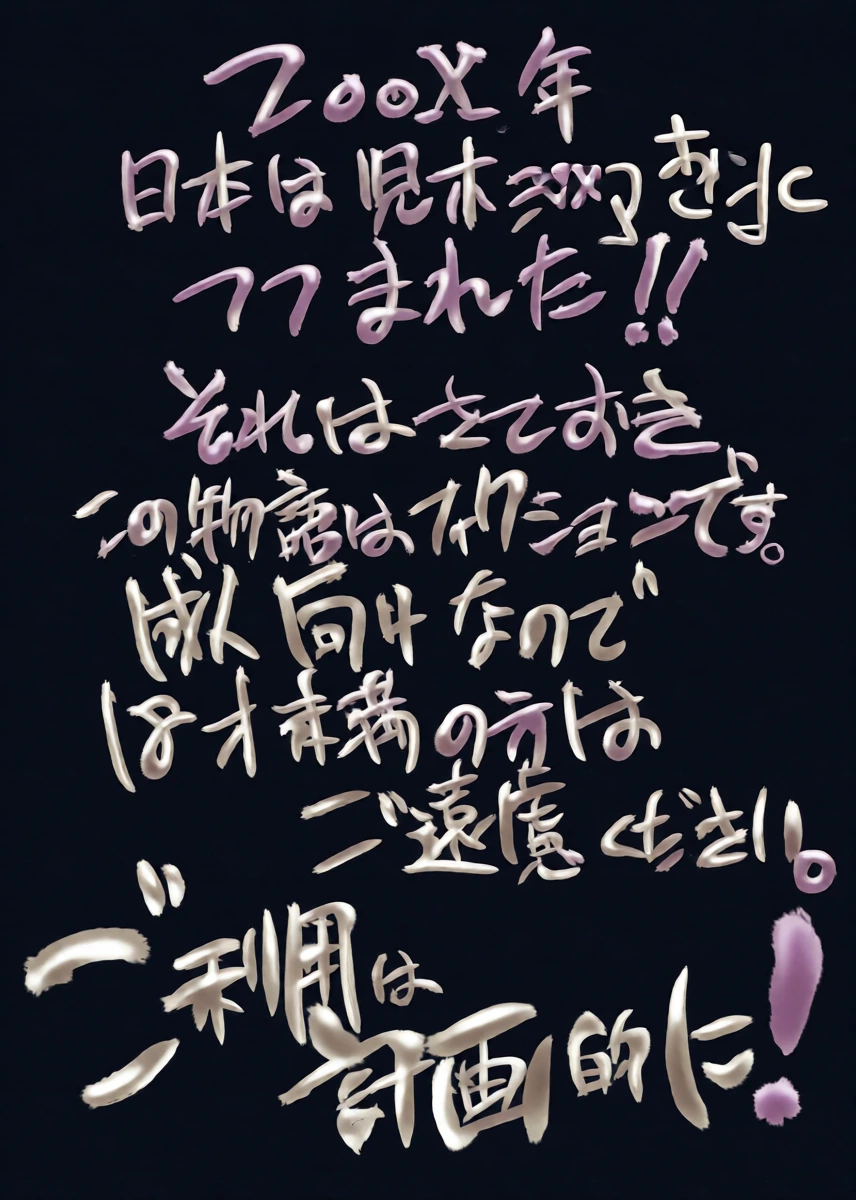 200X年
日本は児ポ
つつまれた!!
それはさておき
この物語はフィクションです。
成人向けなので
18才未満の方は
ご遠慮ください。
ご利用は
計画的に!